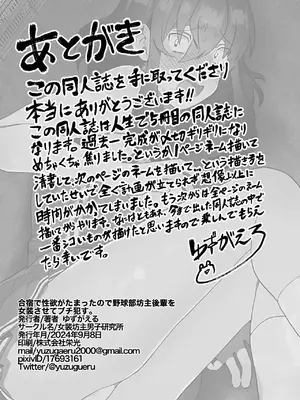 あとがき
この同人誌を手に取ってくださり
本当にありがとうございます!!
この同人誌は人生で5冊目の同人誌に
なります。過去一完成が〆切ギリギリになり
めちゃくちゃ焦りました。というか1ページネーム描いて
清書して次のページのネームを描いて…という描き方を
していたせいで全く計画が立てられず想像以上に
時間がかかてしまいました。もう次からは全ページのネーム
描いてからやります。なにはともあれ、今まで出した同人誌の中で
一番エロいものが描けたと思いますので楽しんでもらえ
たら幸いです。
ゆずがえろ
合宿で性欲がたまったので野球部坊主後輩を
女装させてブチ犯す。
発行者/著者 ゆずがえる
サークル名/女装坊主男子研究所
発行年月/2024年9月8日
印刷/株式会社栄光
mail/yuzugaeru2000@gmail.com
pixivID/17693161
Twitter/@yuzugueru